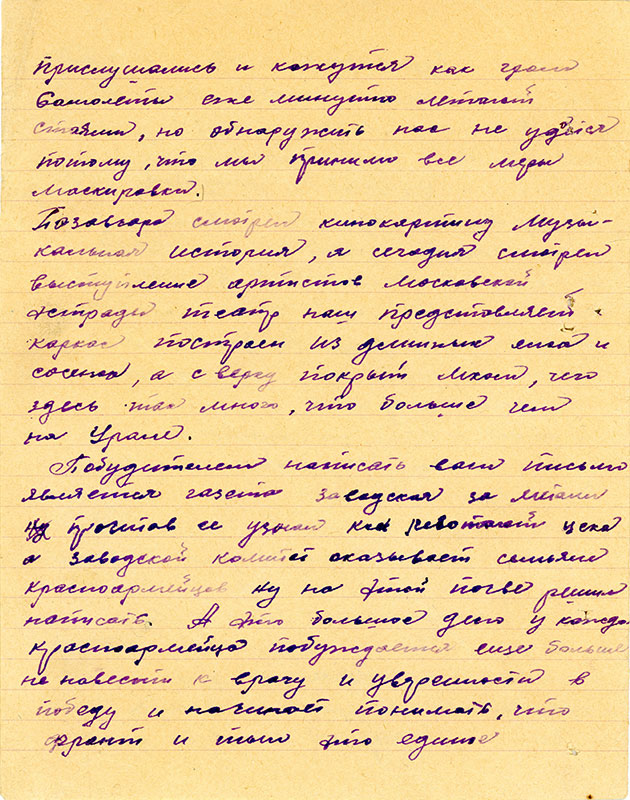 прислушались и кажутся как гром
самолёты еже минутно летают
стаями, но обнаружить нас не удаётся
потому, что мы приняли все меры
маскировки.
Позавчера смотрел кинокартину Музы-
кальная история, а сегодня смотрел
выступление артистов московской
эстрады театр наш представляет
каркас построен из длинных елка и
сосенка, а с верху покрыт мхом, чего
здесь так много, что больше чем
на Урале.
Побудителем написать вам письмо
является газета заводская за
прочтав ее узнал как работают цеха
а заводской комитет оказывает семьям
красноармейцов ну на этой почве решил
написать. А это большое дело у каждо
красноармейца побуждается еще больше
не навести к врагу и уверенности в
победу и начинает понимать, что
фронт и тыл это единое